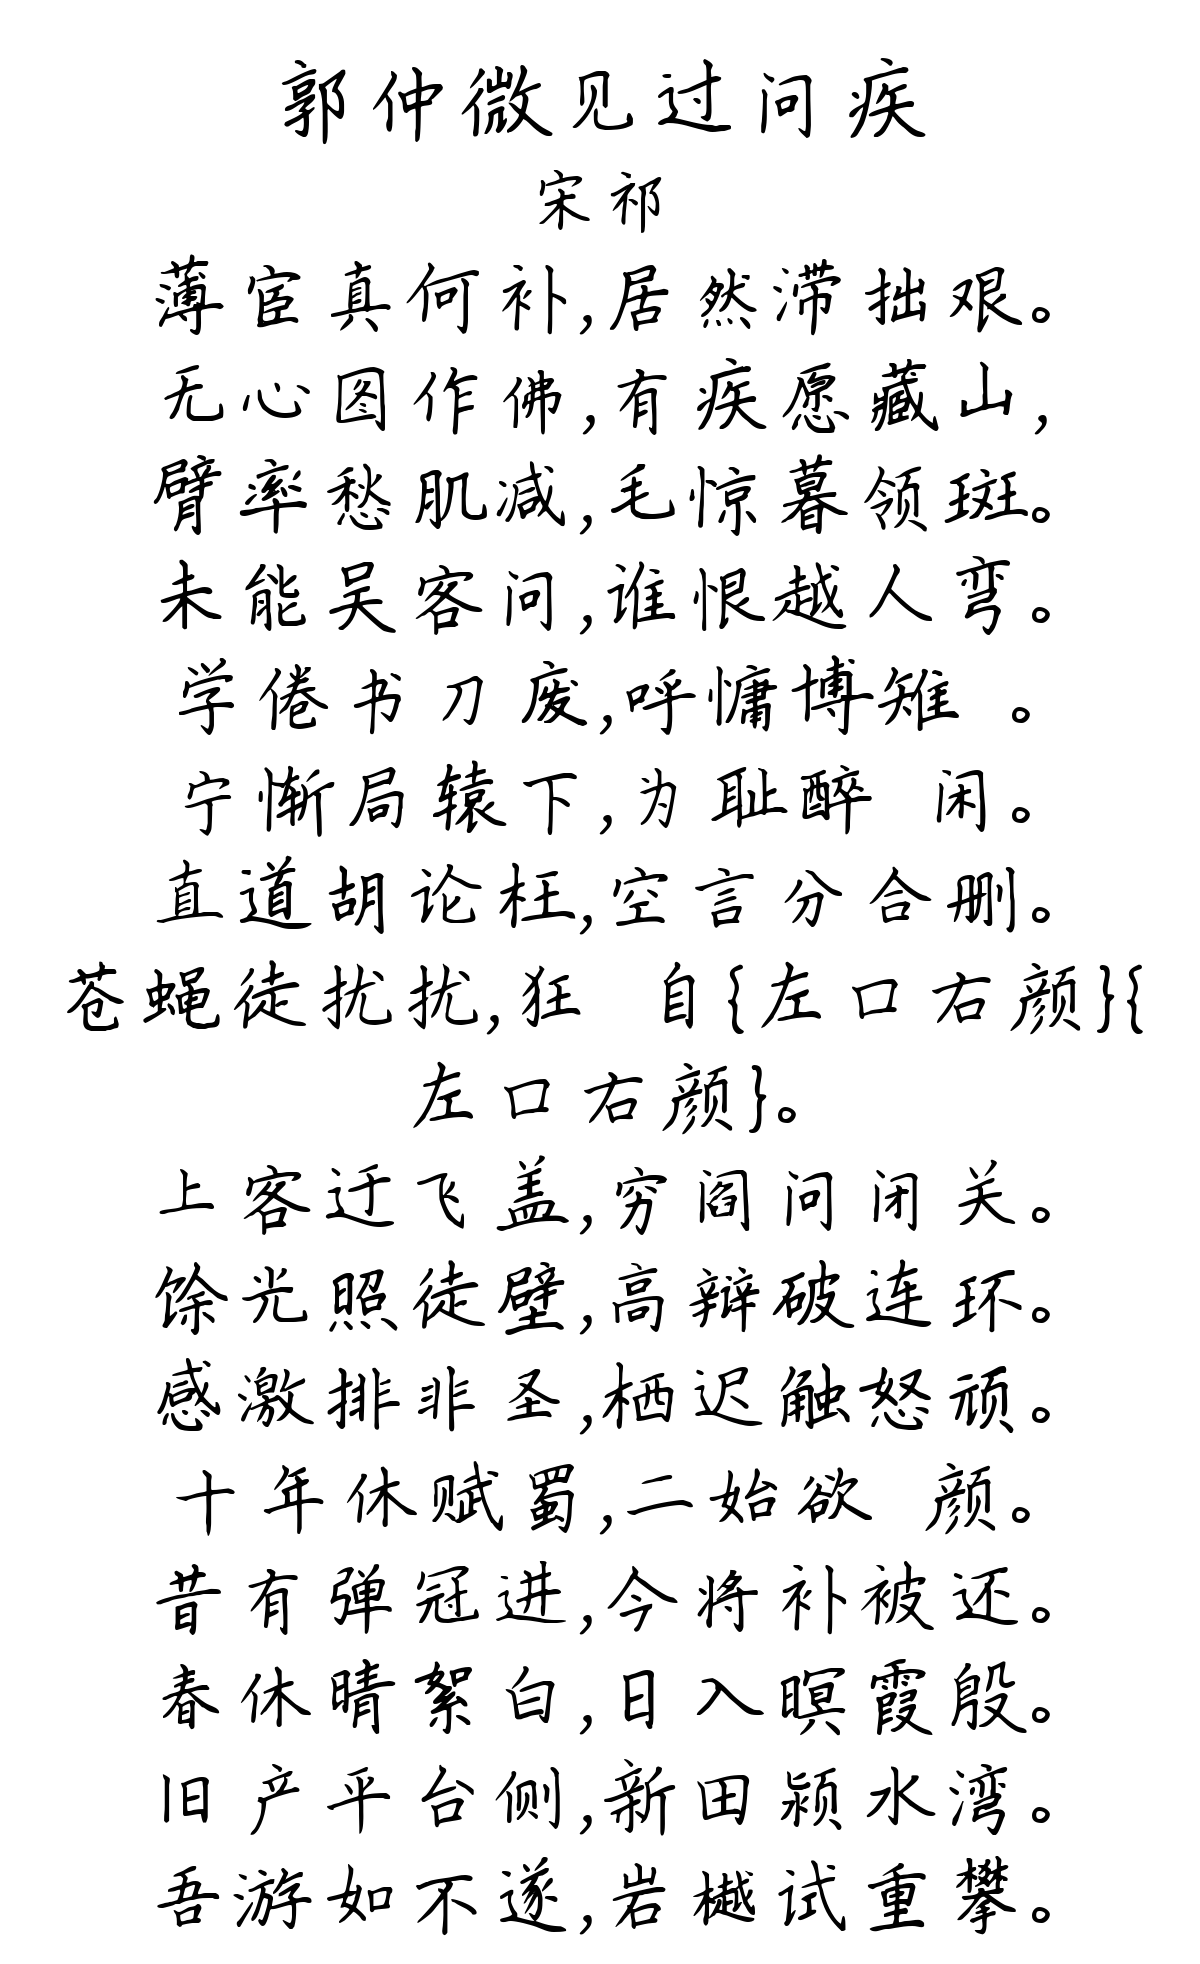 郭仲微见过问疾
宋祁
薄宦真何补,居然滞拙艰。
无心图作佛,有疾愿藏山,
臂率愁肌减,毛惊暮领斑。
未能吴客问,谁恨越人弯。
学倦书刀废,呼慵博雉 。
宁惭局辕下,为耻醉 闲。
直道胡论枉,空言分合删。
苍蝇徒扰扰,狂 自{左口右颜}{
左口右颜}。
上客迂飞盖,穷阎问闭关。
馀光照徒壁,高辩破连环。
感激排非圣,栖迟触怒顽。
十年休赋蜀,二始欲 颜。
昔有弹冠进,今将补被还。
春休晴絮白,日入暝霞殷。
旧产平台侧,新田颍水湾。
吾游如不遂,岩樾试重攀。